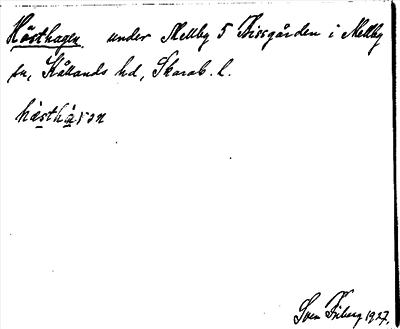 Hästhagen under Mellby 5 Bissgården i Mellby
sn, Kållands hd, Skarab. l.
hästhàgən
Sven Friberg 1927.